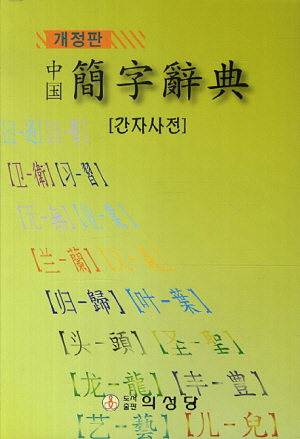 개정판
中国 簡字辭典
[간자사전]
【卫-衛】【习-習】
【兰-蘭】
【归-歸】【叶-葉】
【头-頭】【圣-聖】
【龙-龍】【丰-豊】
【艺-藝】【儿-兒】
도서출판 의성당